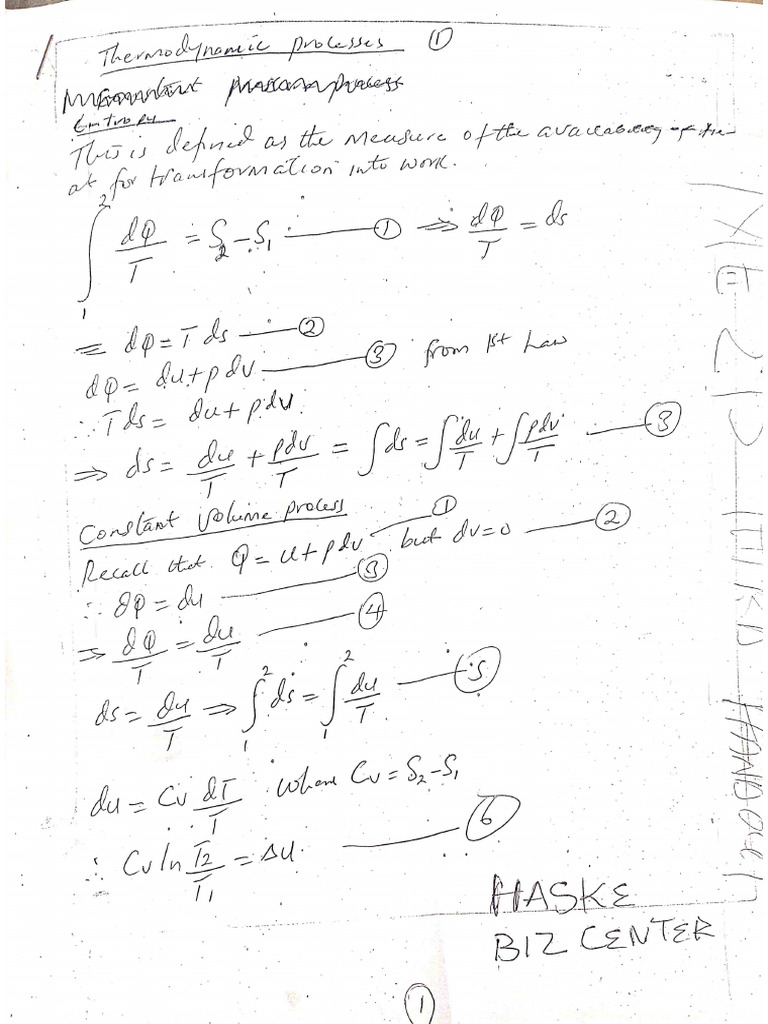 Thermodynamic processes ①
Entropy
This is defined as the measure of the availability of he-
at for transformation into work.
∫₁² dQ/T = S₂ – S₁ —— ① ⇒ dQ/T = ds
= dQ = T ds —— ②
dQ = du + p dv —— ③ from 1st Law
∴ Tds = du + pdv
⇒ ds = du/T + pdv/T = ∫ds = ∫du/T + ∫pdv/T —— ③
Constant Volume process
Recall that Q = u + pdv —— ① but dv = 0 —— ②
∴ ∂Q = du —— ③
⇒ dQ/T = du/T —— ④
ds = du/T ⇒ ∫₁² ds = ∫₁² du/T —— ⑤
du = Cv dT/T where Cv = S₂ – S₁
∴ Cv ln T₂/T₁ = Δu —— ⑥
HASKE
BIZ CENTER
①
HANDOUT